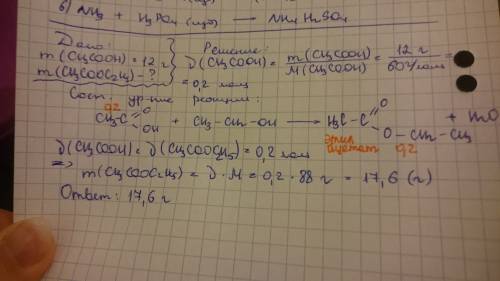 б) NH₃ + H₃PO₄ (изб) → NH₄H₂SO₄
Дано:
m(CH₃COOH) = 12 г
m(CH₃COOC₂H₅) - ?
Решение:
ν(CH₃COOH) = m(CH₃COOH) / M(CH₃COOH) = 12 г / 60 г/моль =
= 0,2 моль
Сост. ур-ние реакции:
0,2
CH₃C O OH + CH₃-CH₂-OH → H₃C-C O O-CH₂-CH₃ +
этил ацетат 0,2
ν(CH₃COOH) = ν(CH₃COOC₂H₅) = 0,2 моль
=> m(CH₃COOC₂H₅) = ν · M = 0,2 · 88 г = 17,6 (г)
Ответ: 17,6 г